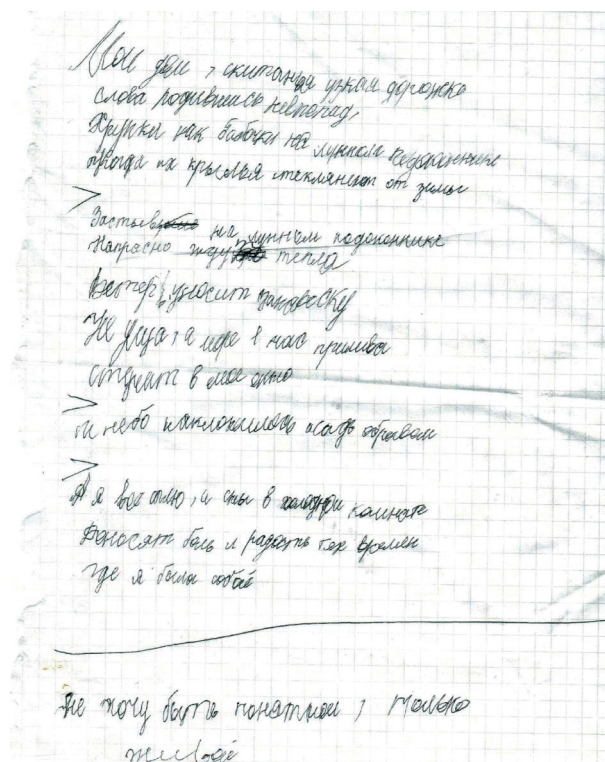 Мой дом, скитанья узкая дорожка
слова родились невпопад,
Хрупки как бабочки на лунном подоконнике
когда их крылья стекленеют от зимы
>
Застыв на лунном подоконнике
Напрасно жду тепла
Ветер уносит занавеску
Не улица, а море в час прилива
стучат в мое окно
>
и небо наклонилось над обрывом
>
А я все сплю, и сны в холодной комнате
Доносят боль и радость тех времен
где я была собой
не хочу быть понятной, только
живой